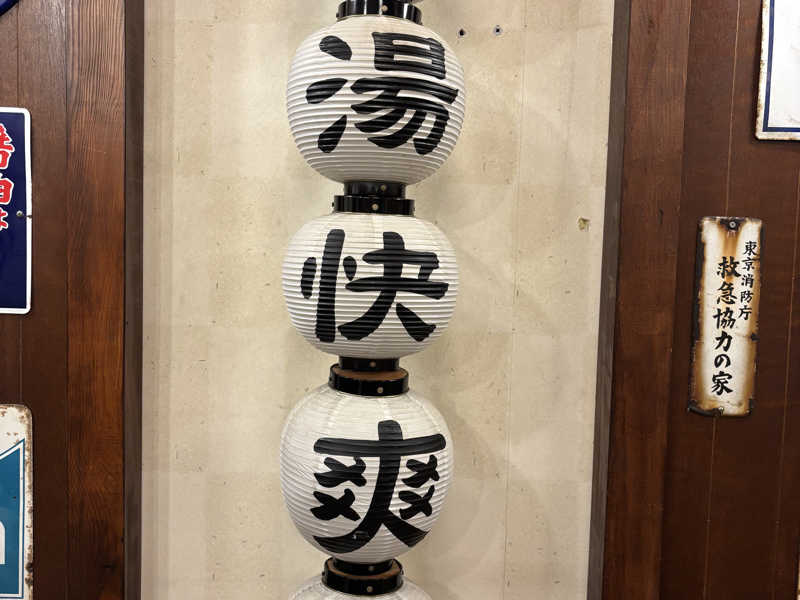 湯
快
爽
東京消防庁
救急協力の家